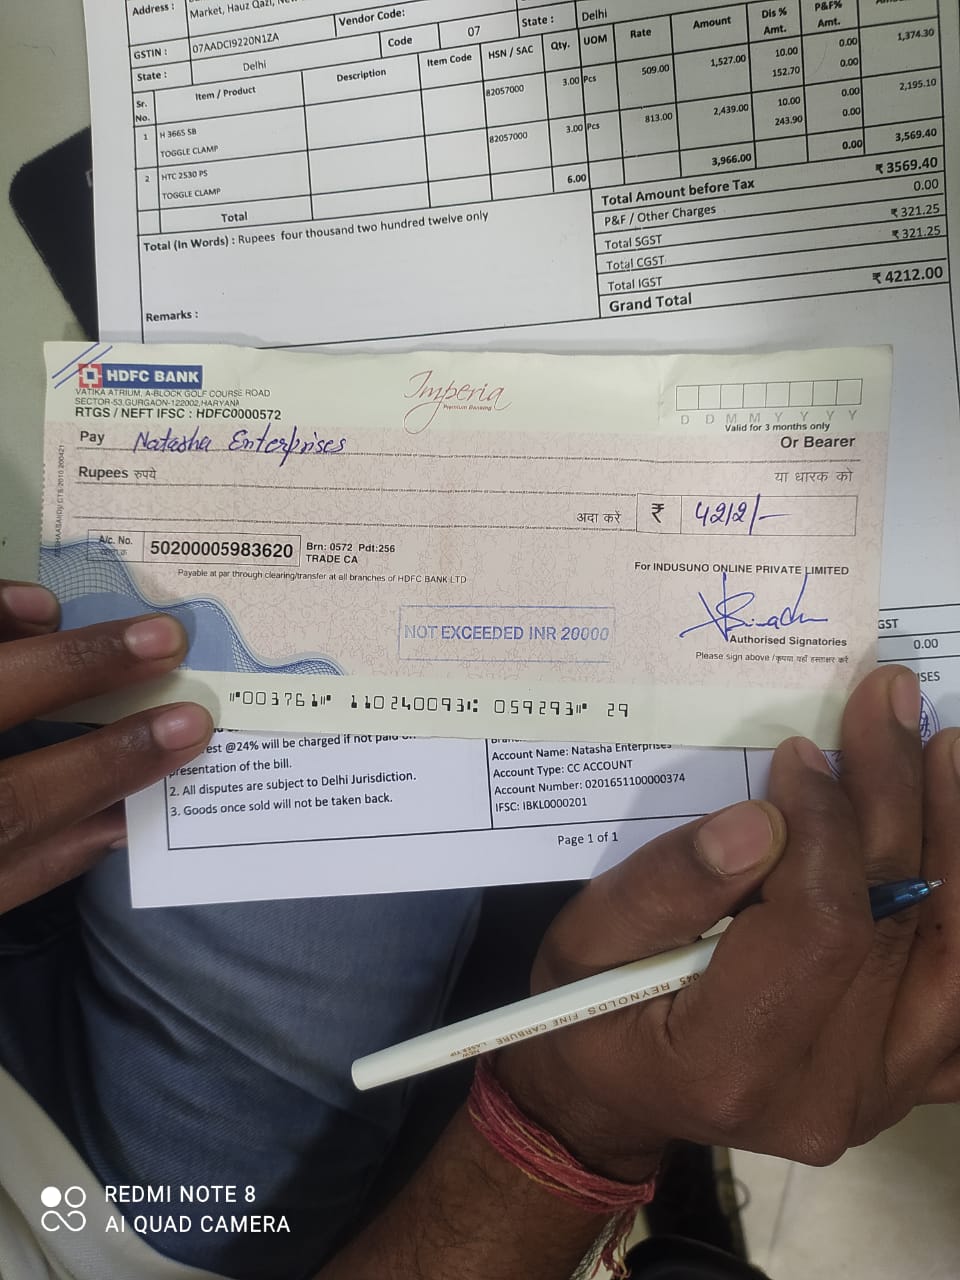 Address :
Market, Hauz Qazi,
GSTIN : 07AADCI9220N1ZA
Vendor Code:
State : Delhi
Code 07
State : Delhi
Sr. No. Item / Product Description Item Code HSN / SAC Qty. UOM Rate Amount Dis % Amt. P&F% Amt.
1 H 3665 SB 82057000 3.00 Pcs 509.00 1,527.00 10.00 0.00 1,374.30
TOGGLE CLAMP 152.70 0.00
2 HTC 2530 PS 82057000 3.00 Pcs 813.00 2,439.00 10.00 0.00 2,195.10
TOGGLE CLAMP 243.90 0.00
Total 6.00 3,966.00 0.00 3,569.40
Total (In Words) : Rupees four thousand two hundred twelve only
Total Amount before Tax ₹ 3569.40
P&F / Other Charges 0.00
Total SGST ₹ 321.25
Total CGST ₹ 321.25
Total IGST
Grand Total ₹ 4212.00
Remarks :
HDFC BANK
VATIKA ATRIUM, A-BLOCK GOLF COURSE ROAD
SECTOR-53,GURGAON-122002,HARYANA
RTGS / NEFT IFSC : HDFC0000572
Imperia
Premium Banking
D D M M Y Y Y Y
Valid for 3 months only
Pay Natasha Enterprises
Or Bearer
Rupees रुपये
या धारक को
अदा करें ₹ 4212/-
A/c. No. 50200005983620
Brn: 0572 Pdt:256
TRADE CA
Payable at par through clearing/transfer at all branches of HDFC BANK LTD
For INDUSUNO ONLINE PRIVATE LIMITED
NOT EXCEEDED INR 20000
Authorised Signatories
Please sign above / कृपया यहाँ हस्ताक्षर करें
⑈003761⑈ 110240093⑆ 059293⑈ 29
GST
0.00
est @24% will be charged if not paid
presentation of the bill.
2. All disputes are subject to Delhi Jurisdiction.
3. Goods once sold will not be taken back.
Account Name: Natasha Enterprises
Account Type: CC ACCOUNT
Account Number: 0201651100000374
IFSC: IBKL0000201
Page 1 of 1
045 REYNOLDS FINE CARBURE
NEW LASER TIP
REDMI NOTE 8
AI QUAD CAMERA